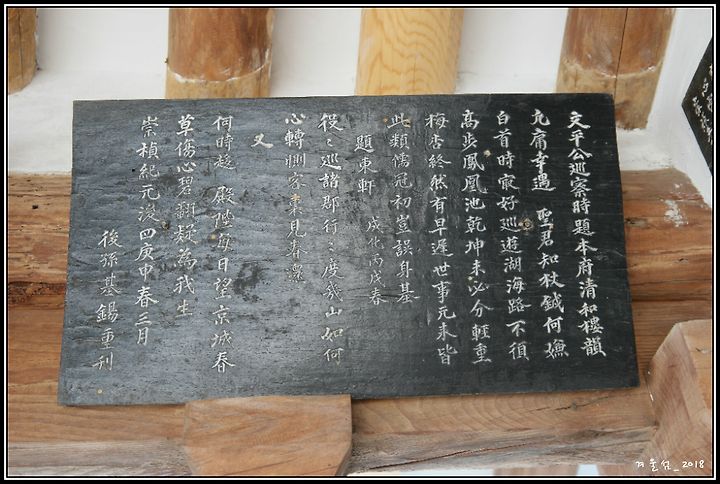 文平公巡察時題本府清和樓韻
凡庸幸遇 聖君知杖鉞何嫌
白首時㝡好巡遊湖海路不須
高步鳳凰池乾坤未必分輕重
梅杏終然有早遲世事元來皆
此類儒冠初豈誤身基
題東軒 成化丙戌春
役〻巡諸郡行〻度幾山如何
心轉惻客裏見春還
又
何時趍 殿陛每日望京城春
草傷心碧翻疑爲我生
崇禎紀元後四庚申春三月
後孫基錫重刊
겨울섬_2018